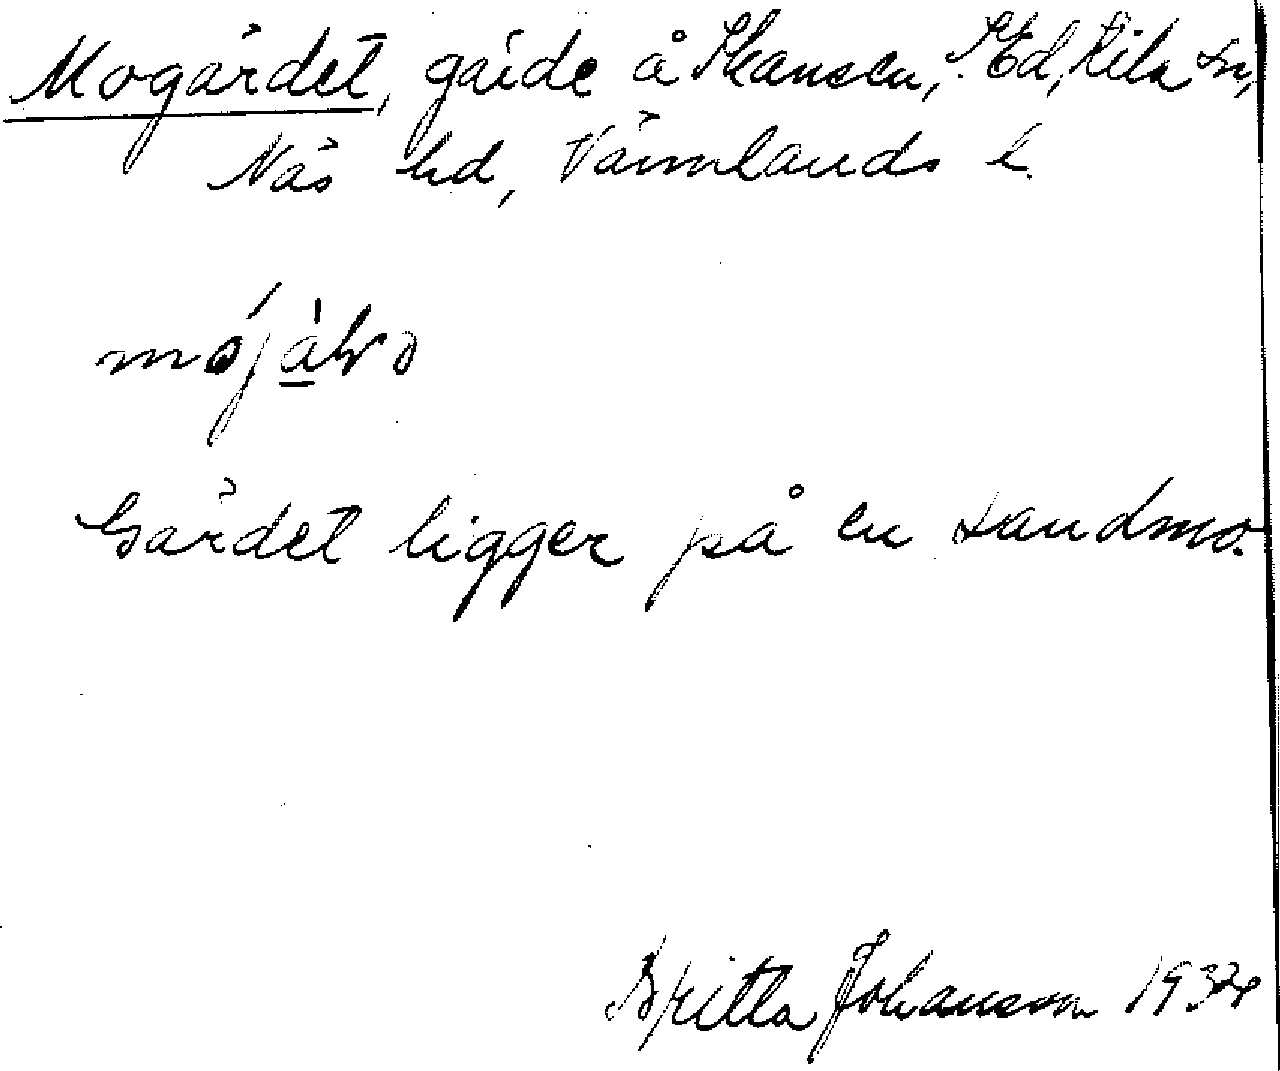 Mogärdet, gärde å Skansen, S. Ed, Kila sn,
Näs hd, Värmlands l.
Gärdet ligger på en sandmo.
Britta Johansson 1934